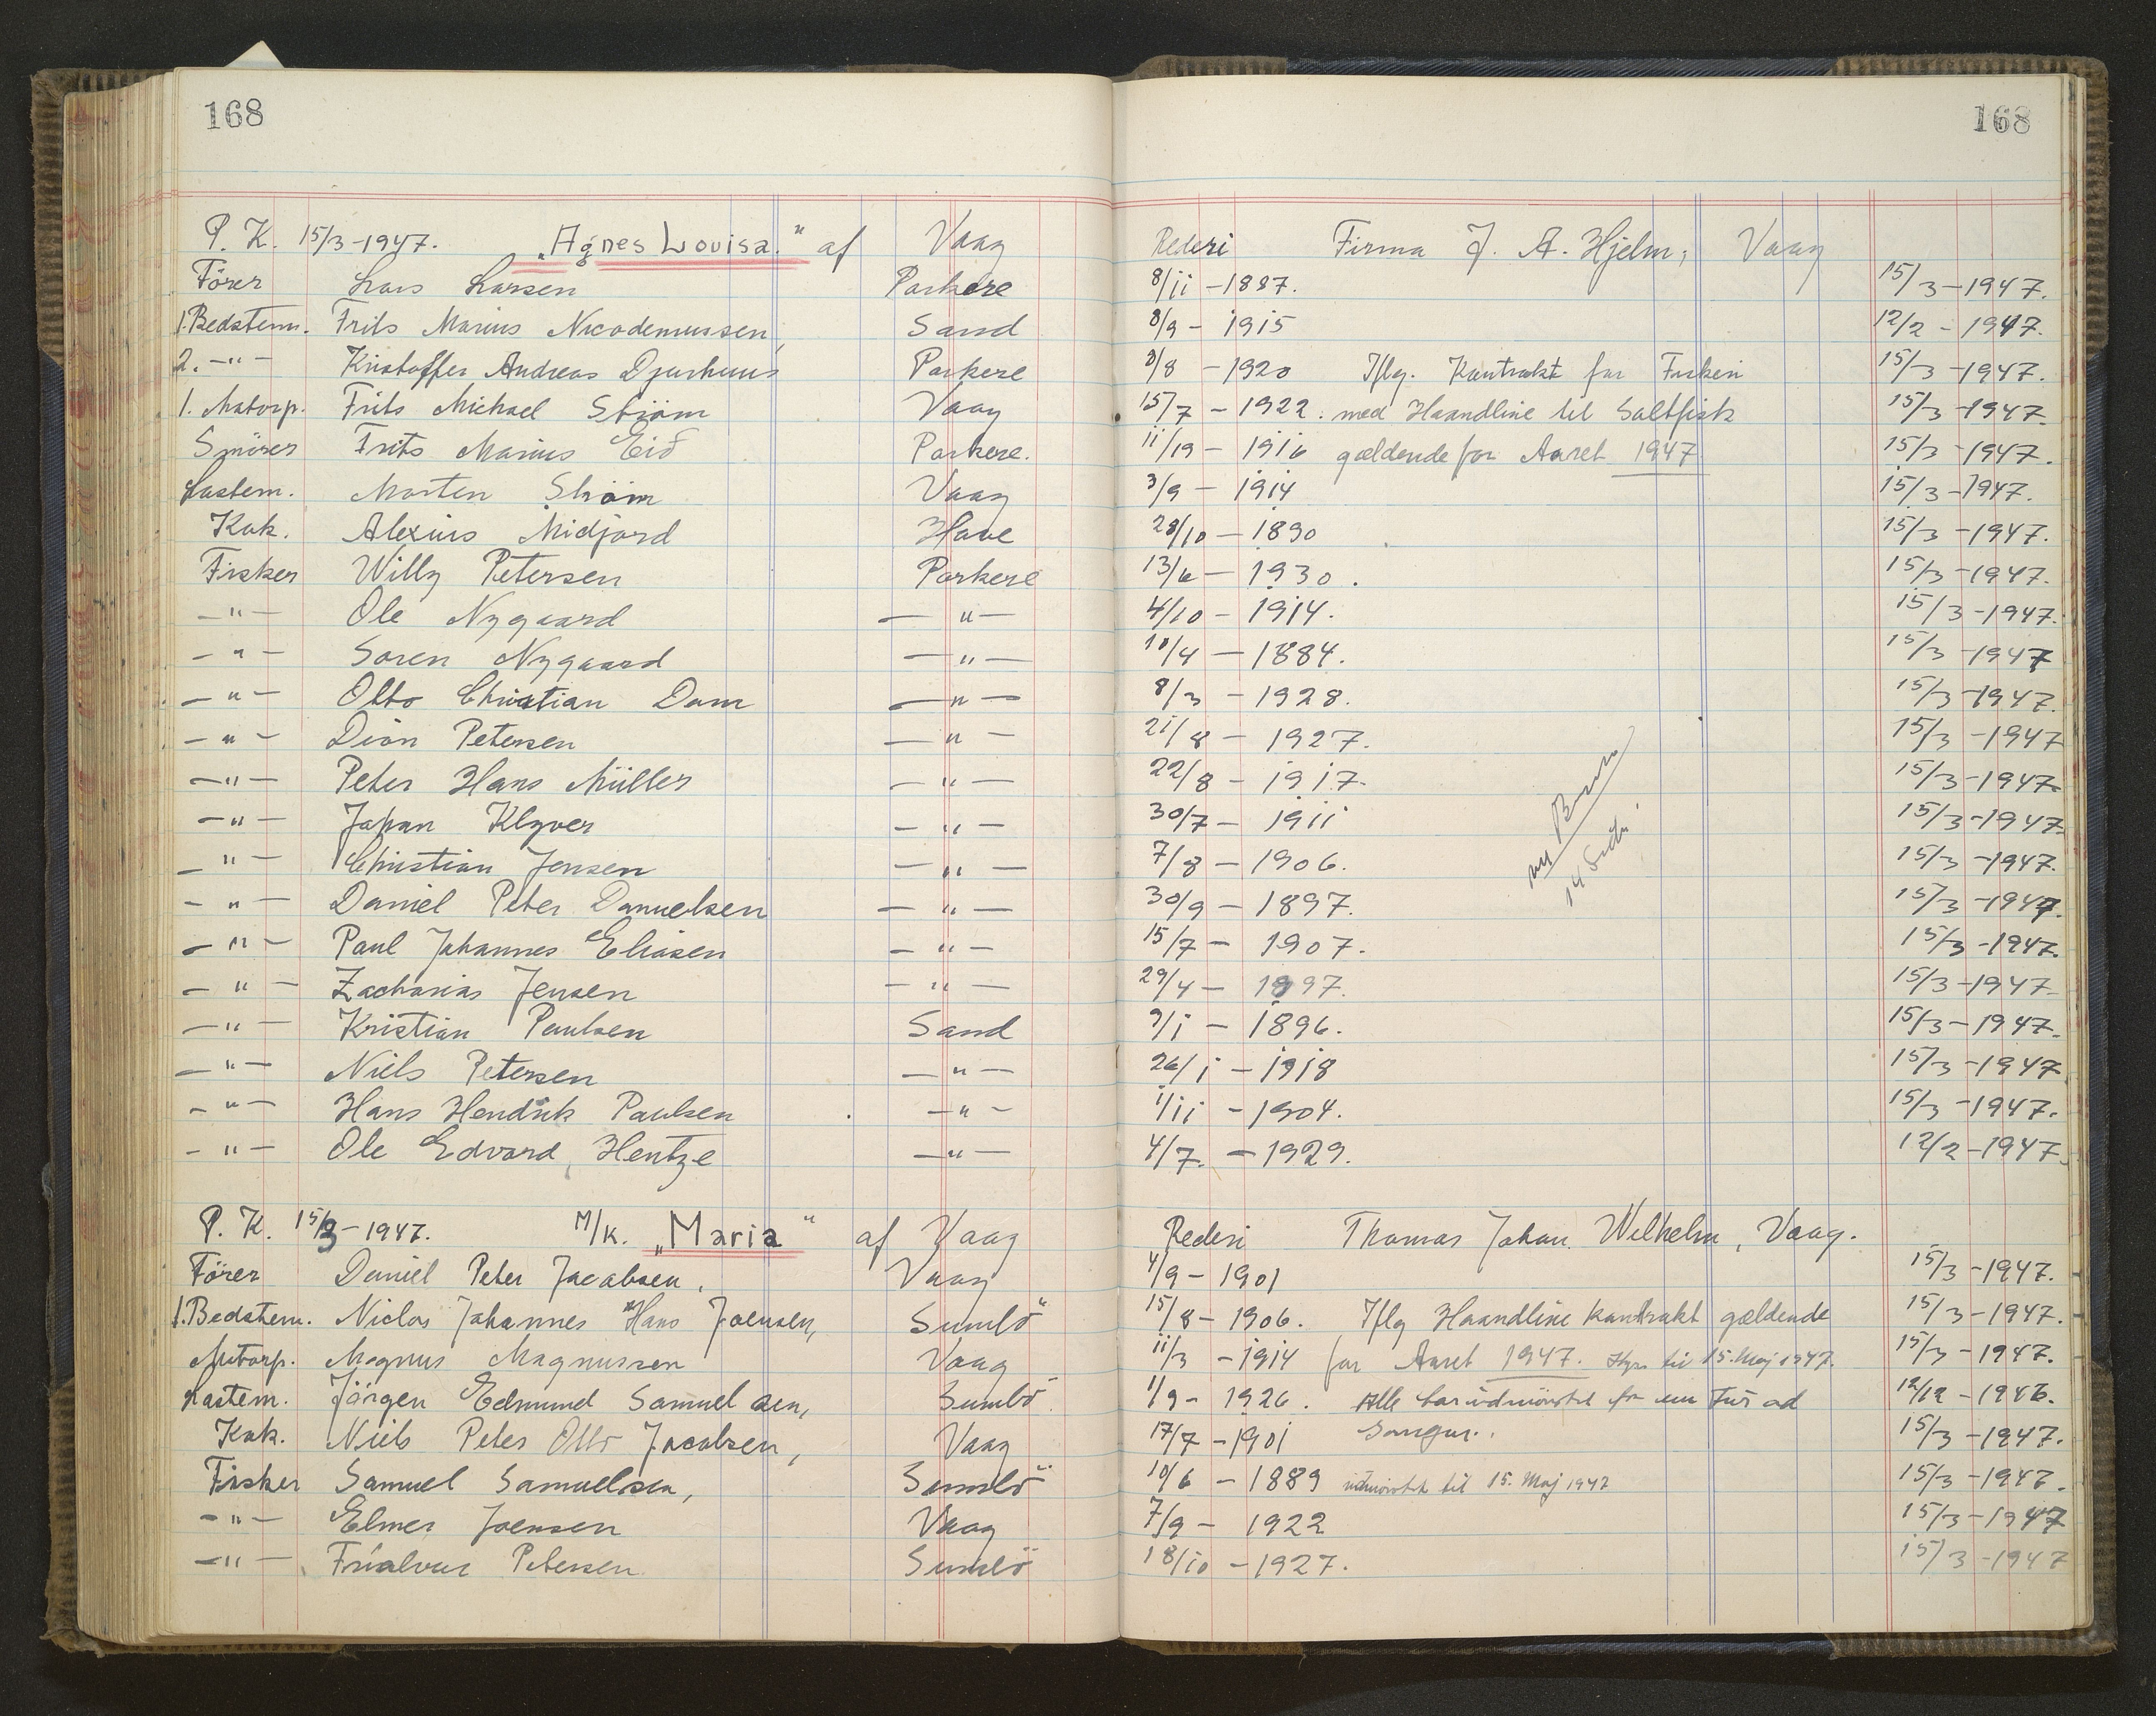 168 168
P. K. 15/3-1947. „Agnes Lovisa." af Vaag Rederi Firma J. A. Hjelm, Vaag
Förer Lars Larsen Porkere 8/11-1887. 15/3-1947.
1.Bedstem. Frits Marius Nicodemussen, Sand 8/9-1915 12/2-1947.
2. -"- Kristoffer Andreas Djurhuus Porkere 8/8-1920 Iflg. Kontrakt for Fiskeri 15/3-1947.
1. Motorp. Frits Michael Ström Vaag 15/7-1922. med Haandline til Saltfisk 15/3-1947.
Smörer Frits Marius Eid Porkere. 11/19-1916 gældende for Aaret 1947 15/3-1947.
Lastem. Morten Ström Vaag 3/9-1914 15/3-1947.
Kok. Alexius Midjord Hove 28/10-1890 15/3-1947.
Fisker Willy Petersen Porkere 13/6-1930. 15/3-1947.
-"- Ole Nygaard -"- 4/10-1914. 15/3-1947.
-"- Soren Nygaard -"- 10/4-1884. 15/3-1947
-"- Otto Christian Dam -"- 8/3-1928. 15/3-1947.
-"- Dion Petersen -"- 21/8-1927. 15/3-1947
-"- Peter Hans Müller -"- 22/8-1917. 15/3-1947
-"- Johan Klyver -"- 30/7-1911 15/3-1947
-"- Christian Jensen -"- 7/8-1906. 15/3-1947.
-"- Daniel Peter Danielsen -"- 30/9-1897. 15/3-1947.
-"- Paul Johannes Eliasen -"- 15/7-1907. 15/3-1947.
-"- Zacharias Jensen -"- 29/4-1897. 15/3-1947
-"- Kristian Paulsen Sand 9/1-1896. 15/3-1947.
-"- Niels Petersen -"- 26/1-1918 15/3-1947
-"- Hans Hendrik Paulsen -"- 1/11-1904. 15/3-1947.
-"- Ole Edvard Hentze -"- 4/7.-1929. 12/2-1947.
P. K. 15/3-1947. M/K. „Maria" af Vaag Rederi Thomas Johan Wilhelm, Vaag.
Förer Daniel Peter Jacobsen, Vaag 4/9-1901 15/3-1947.
1.Bedstem. Niclas Johannes Hans Joensen, Sumbö 15/8-1906. Iflg Haandline kontrakt gældende 15/3-1947.
Motorp. Magnus Magnussen Vaag 11/3-1914 for Aaret 1947. til 15. Maj 1947. 15/3-1947.
Lastem. Jörgen Edmund Samuelsen, Sumbö 1/9-1926. Alle 12/12-1946.
Kok. Niels Peter Otto Jacobsen, Vaag 17/7-1901 15/3-1947.
Fisker Samuel Samuelsen, Sumbö 10/6-1889 udmönstret til 15. Maj 1947 15/3-1947.
-"- Elmer Joensen Vaag 7/9-1922 15/3-1947
-"- Frialvur Petersen Sumbö 18/10-1927. 15/3-1947